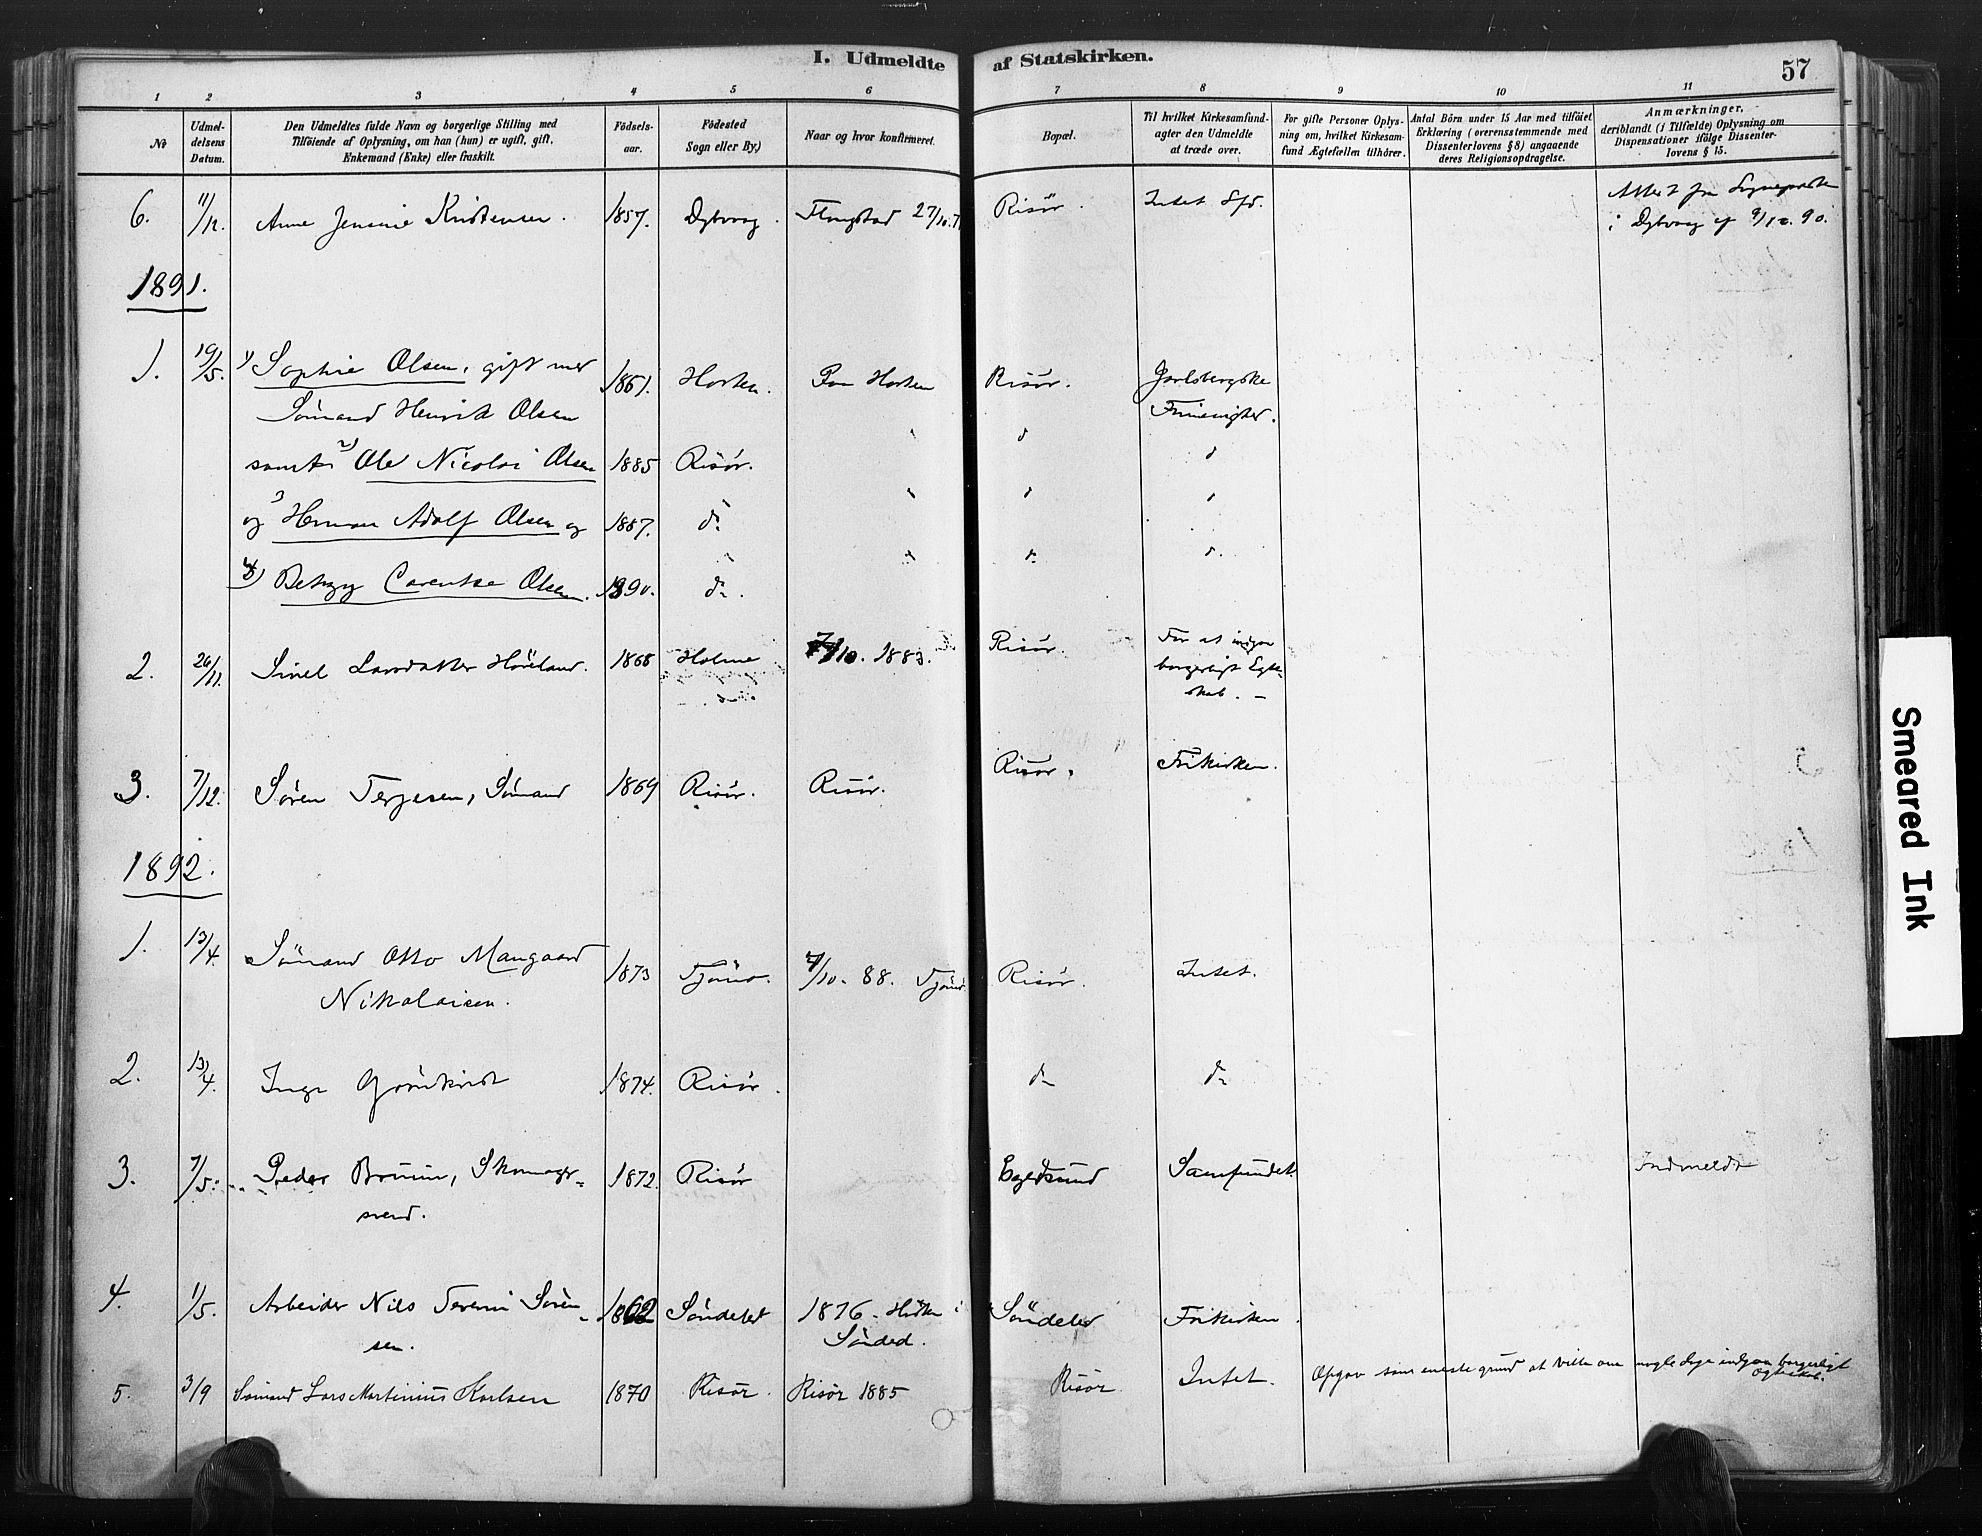 I. Udmeldte af Statskirken.
57
1 2 3 4 5 6 7 8 9 10 11
No
Udmel-
delsens
Datum.
Den Udmeldtes fulde Navn og borgerlige Stilling med
Tilföiende af Oplysning, om han (hun) er ugift, gift,
Enkemand (Enke) eller fraskilt.
Födsels-
aar.
Födested
Sogn eller By.)
Naar og hvor konfirmeret.
Bopæl.
Til hvilket Kirkesamfund-
agter den Udmeldte
at træde over.
For gifte Personer Oplys-
ning om, hvilket Kirkesam-
fund Ægtefællen tilhörer.
Antal Börn under 15 Aar med tilföiet
Erklæring (overensstemmende med
Dissenterlovens § 8) angaaende
deres Religionsopdragelse.
Anmærkninger,
deriblandt (i Tilfælde) Oplysning om
Dispensationer ifölge Dissenter-
lovens § 15.
6. 11/12. Anne Jensine Kristensen. 1857. Dybvaag. 27/10. Risör. Intet Sfd. Attest fra Sognepresten
i Dybvaag af 9/12. 90.
1891.
1. 19/5. 1) Sophie Olsen, gift med 1861. Horten. Horten Risör. Jarlsbergske
Sömand Henrik Olsen Frimenighed.
samt 2) Ole Nicolai Olsen 1885 Risör. " d d
og 3 Herman Adolf Olsen og 1887. do " d d
4) Betzy Carentse Olsen. 1890. do. " d d.
2. 26/11. Sinel Larsdatter Höiland. 1868 Holme 7/10. 1883. Risör. For at indgaa
borgerligt Egte-
skab. –
3. 7/12. Sören Terjesen, Sömand 1869 Risör. Risör. Risör. Frikirken.
1892.
1. 13/4. Sömand Otto Mangaard 1873 Tjömö. 7/10. 88. Tjömö. Risör. Intet.
Nikolaisen.
2. 13/4. Inga Grönkvist 1874. Risör. do do
3. 7/5. Peder Bruun, Skomager- 1872. Risör Egersund Samfundet Indmeldt
svend.
4. 1/5. Arbeider Nils Sören- 1862 Söndeled 1876. i Söndeled Frikirken.
sen. Sönded.
5. 3/9 Sömand Lars Martinius Karlsen 1870 Risör. Risör 1885 Risör Intet. Opgav som eneste grund at ville om nogle dage indgaa borgerligt
Ægteskab.
Smeared Ink